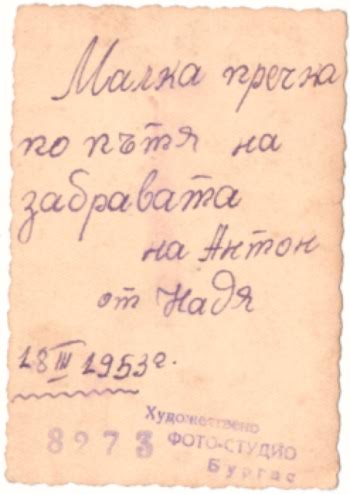 Малка пречка
по пътя на
забравата
на Антон
от Надя
18 III 1953 г.
Художествено
8273 ФОТО-СТУДИО
Бургас